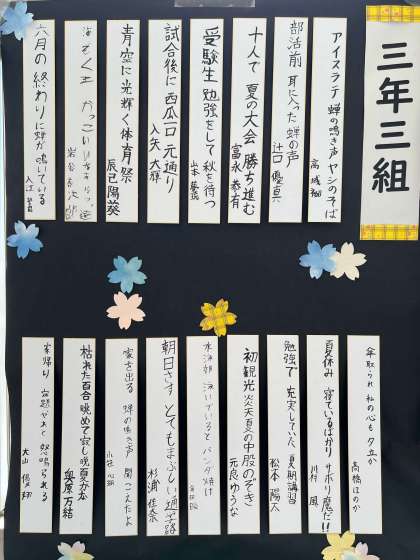 三年三組
アイスラテ 蝉の鳴き声 ヤシのそば
高城
部活前 耳に入った蝉の声
辻口 優真
十人で 夏の大会 勝ち進む
富永 恭有
受験生 勉強をして 秋を待つ
山本
試合後に 西瓜一口 元通り
入矢 大輝
青空に 光輝く 体育祭
辰已陽葵
六月の 終わりに蝉が 鳴いている
入江
年取られ 私の心も 夕立か
高橋ほのか
夏休み 寝ているばかり サボり魔だ!!
川村 風
勉強で 充実していた 夏期講習
松本 陽太
初観光 炎天夏の 中股のぞき
元良ゆうな
水泳部 泳いでいると パンダ焼け
朝日さす とてもまぶしい 通学路
杉浦 佳奈
家を出る 蝉の鳴き声 聞こえたよ
枯れた百合 眺めて寂し 晩夏かな
奥原 万結
家帰り 宿題やれと 怒鳴られる
大山